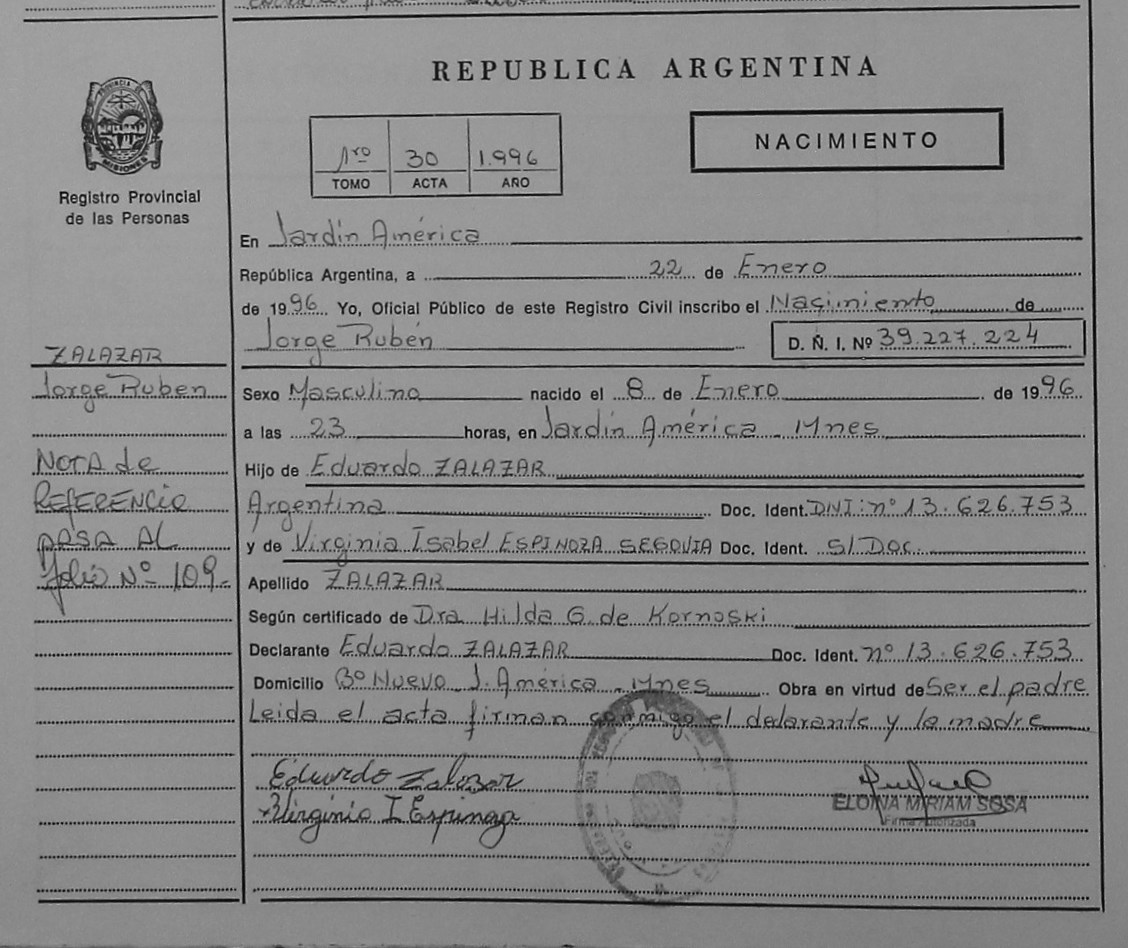 REPUBLICA ARGENTINA
PROVINCIA DE
MISIONES
Registro Provincial
de las Personas
1ro 30 1.996
TOMO ACTA AÑO
NACIMIENTO
En Jardín América
República Argentina, a 22 de Enero
de 1996 Yo, Oficial Público de este Registro Civil inscribo el Nacimiento de
Jorge Rubén D. Ñ. I. Nº 39.227.224
Sexo Masculino nacido el 8 de Enero de 1996
a las 23 horas, en Jardín América - Mnes
Hijo de Eduardo ZALAZAR
Argentina Doc. Ident. DNI: nº 13.626.753
y de Virginia Isabel ESPINOZA SEGOVIA Doc. Ident. S/Doc.
Apellido ZALAZAR
Según certificado de Dra Hilda G. de Kornoski
Declarante Eduardo ZALAZAR Doc. Ident. nº 13.626.753
Domicilio Bº Nuevo - J. América - Mnes Obra en virtud de Ser el padre
Leida el acta firman conmigo el declarante y la madre
Eduardo Zalazar
Virginia I Espinoza
ELOINA MIRIAM SOSA
Firma Autorizada
ZALAZAR
Jorge Ruben
NOTA de
REFERENCIA
PASA AL
folio Nº 109-